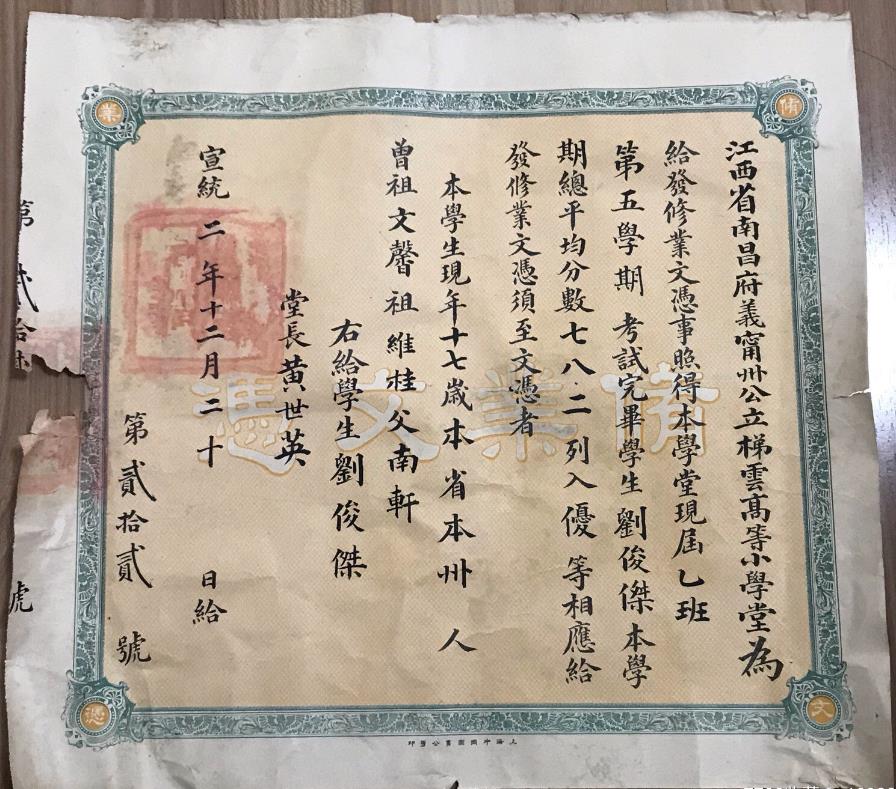 江西省南昌府義甯州公立梯雲高等小學堂為
給發修業文憑事照得本學堂現屆乙班
第五學期考試完畢學生劉俊傑本學
期總平均分數七八.二列入優等相應給
發修業文憑須至文憑者
本學生現年十七歲本省本州人
曾祖文馨祖維桂父南軒
右給學生劉俊傑
堂長黃世英
宣統二年十二月二十日給
第貳拾貳號
修業文憑
修
業
文
憑
第貳拾
號